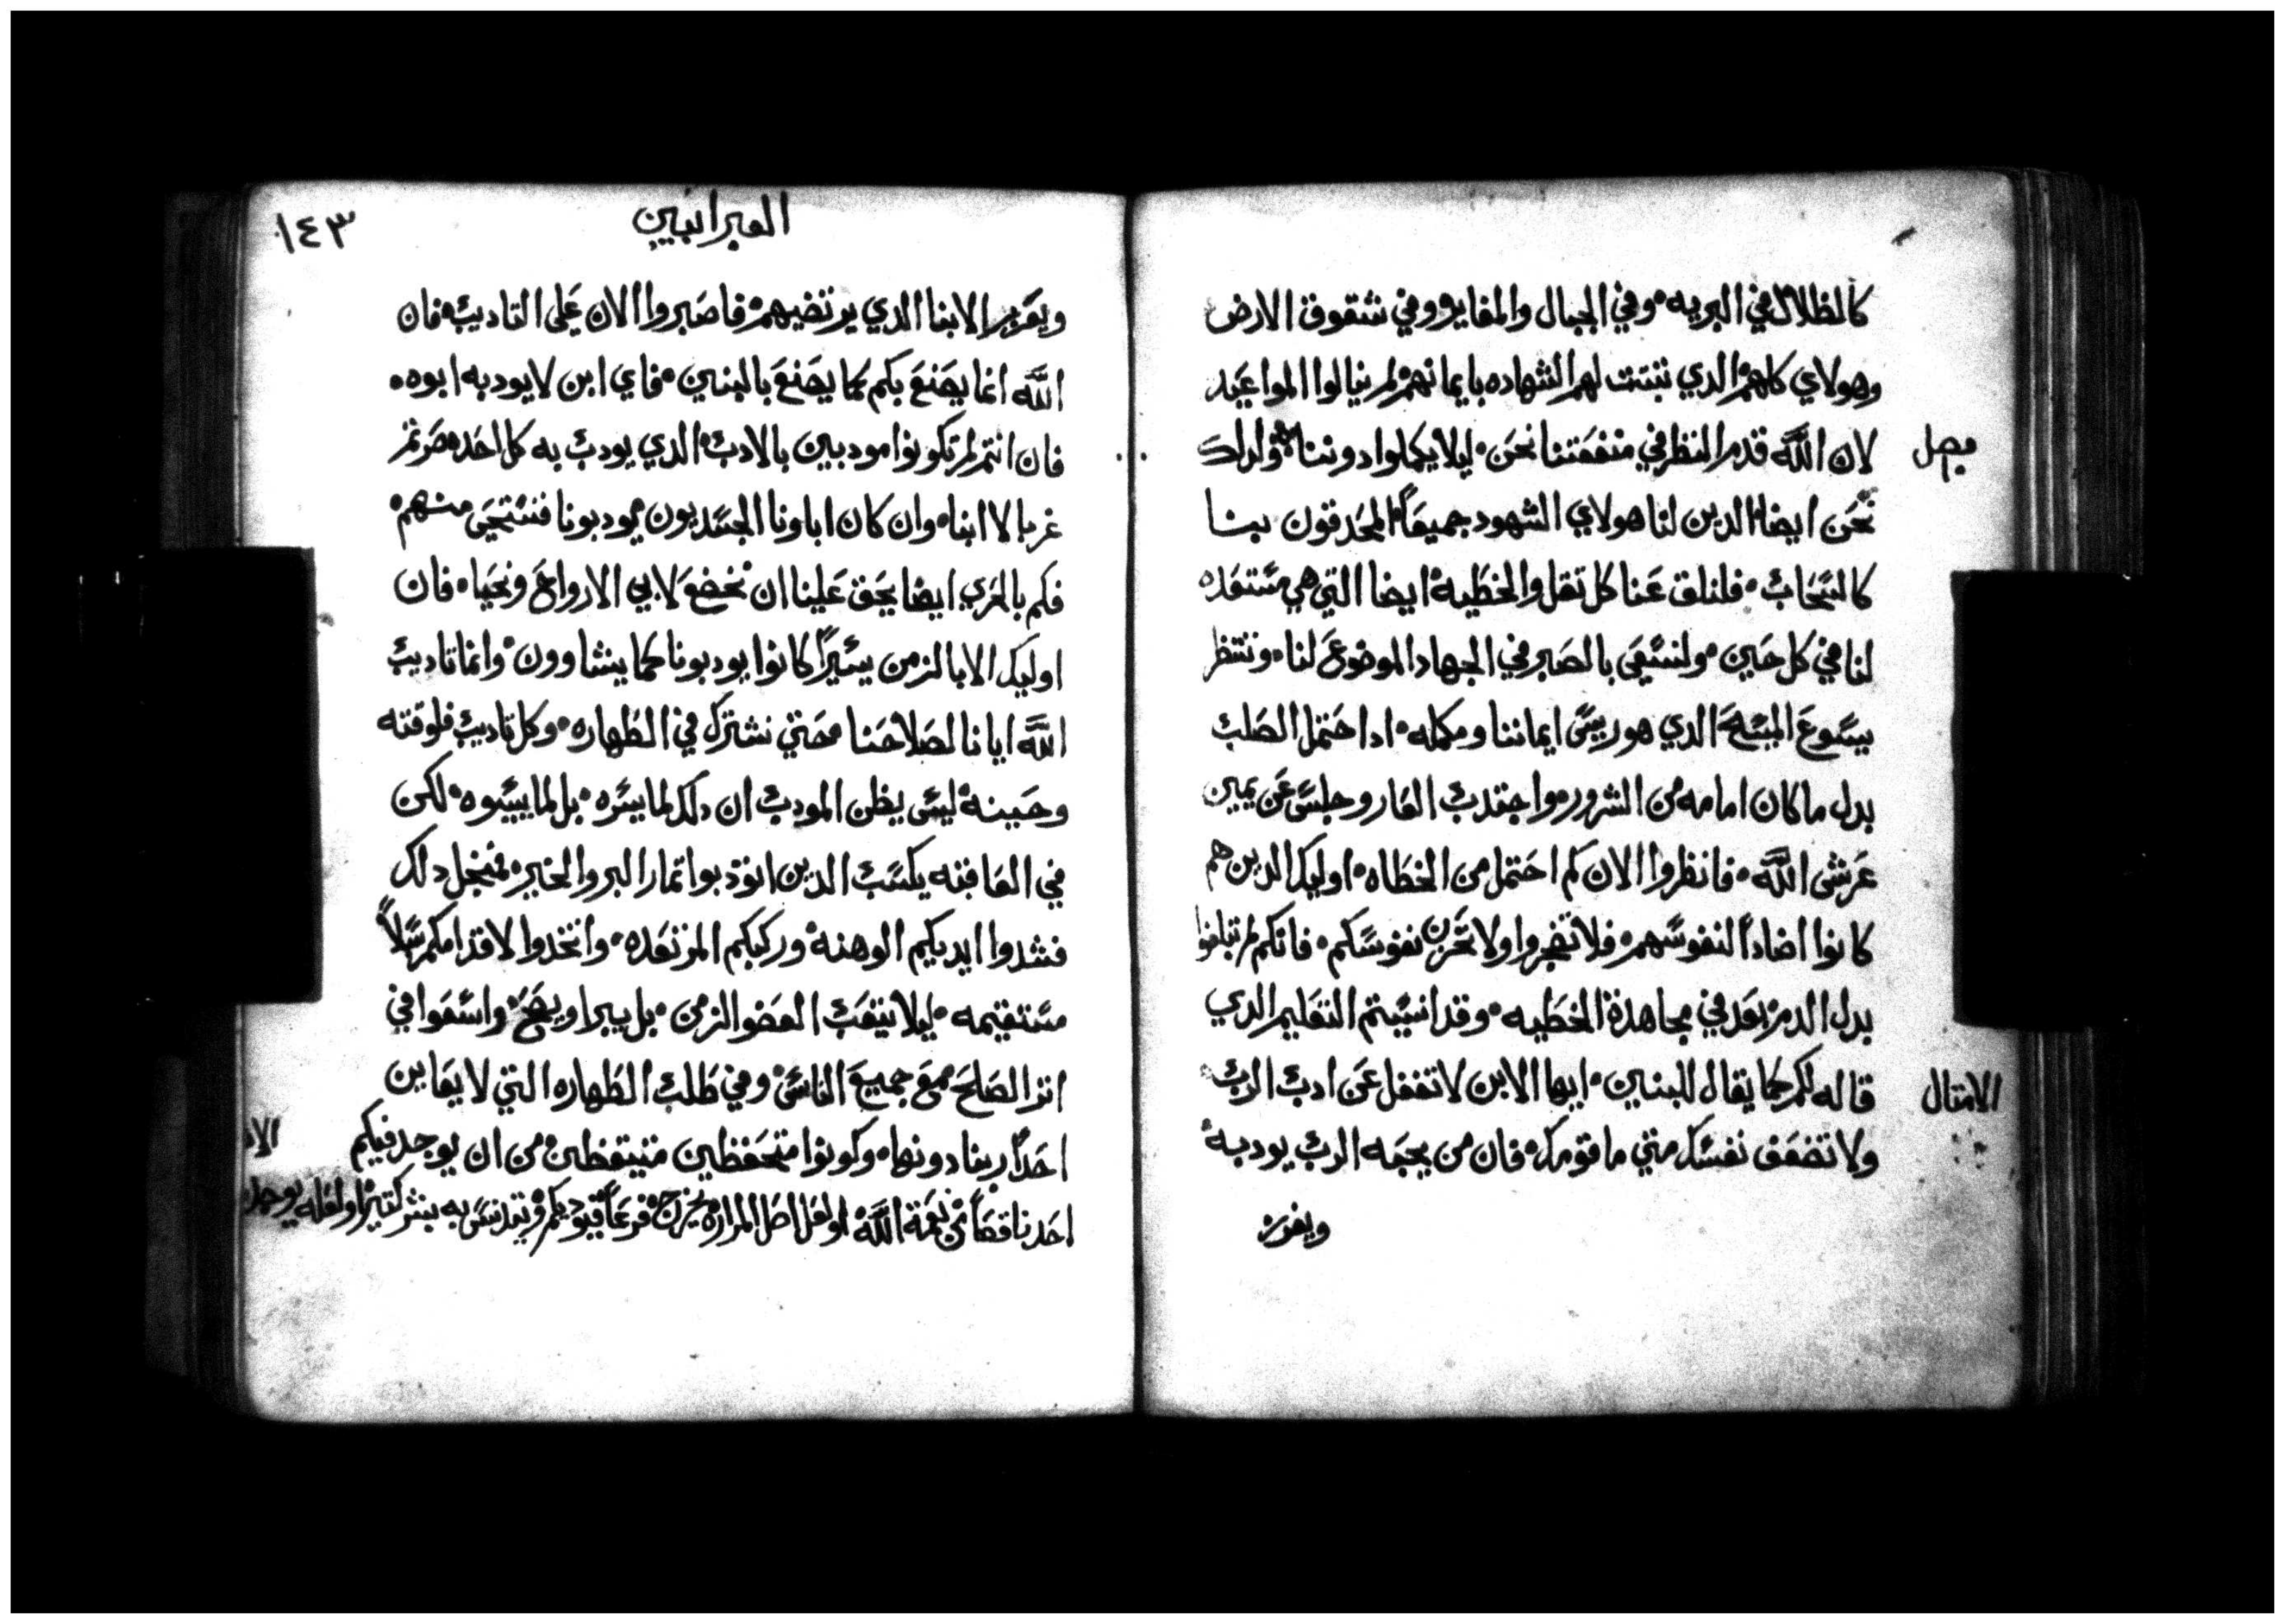 كالظلال في البريه وفي الجبال والمغاير وفي شقوق الارض
وهولاي كلهم الدي تبتت لهم الشهاده بايمانهم لم ينالوا المواعيد
فصل
لان الله قدم النظر في منفعتنا نحن ليلا يكملوا دوننا ولدلك
نحن ايضا الدين لنا هولاي الشهود جميعاً المحدقون بنا
كالسحاب فلنلق عنا كل تقل والخطيه ايضا التي هي مستعده
لنا في كل حين ولنسعى بالصبر في الجهاد الموضوع لنا وننتظر
يسوع المسيح الدي هو ريس ايماننا ومكمله ادا احتمل الصلب
بدل ما كان امامه من السرور واجتدب العار وجلس عن يمين
عرش الله فانظروا الان كم احتمل من الخطاه اوليك الدين هم
كانوا اضاداً لنفوسهم فلا تضجروا ولا تحزن نفوسكم فانكم لم تبلغوا
بدل الدم بعد في مجاهدة الخطيه وقد انسيتم التعليم الدي
الامتال
قاله لكم كما يقال للبنين ايها الابن لا تغفل عن ادب الرب
ولا تضعف نفسك متي ما قومك فان من يحبه الرب يودبه
ويعزر
العبرانيين
١٤٣
ويعزر الابنا الدي يرتضيهم فاصبروا الان على التاديب فان
الله انما يصنع بكم كما يصنع بالبنين فاي ابن لا يودبه ابوه
فان انتم لم تكونوا مودبين بالادب الدي يودب به كل احد صرتم
غربا لا ابنا وان كان اباونا الجسديون يودبونا فنستحي منهم
فكم بالحري ايضا يحق علينا ان نخضع لابي الارواح ونحيا فان
اوليك الابا لزمن يسيراً كانوا يودبونا كما يشاوون وانما تاديب
الله ايانا لصلاحنا حتي نشترك في الطهاره وكل تاديب فلوقته
وحينه ليس يظن المودب ان دلك لما يسره بل لما يسوه لكن
في العاقبه يكسب الدين اتودبوا تمار البر والخير فمنجل دلك
فشدوا ايديكم الوهنه وركبكم المرتعده واتخدوا لاقدامكم سبلاً
مستقيمه ليلا يتعب العضو الزمن بل يبرا ويصح واسعوا في
اتر الصلح مع جميع الناس وفي طلب الطهاره التي لا يعاين
احداً ربنا دونها وكونوا متحفظين متيقظين من ان يوجد فيكم
احد ناقصاً من نعمة الله او لعل اصل المراره يخرج فرعاً فيوديكم ويتدنس به بشر كتيراً ولعله يوجد